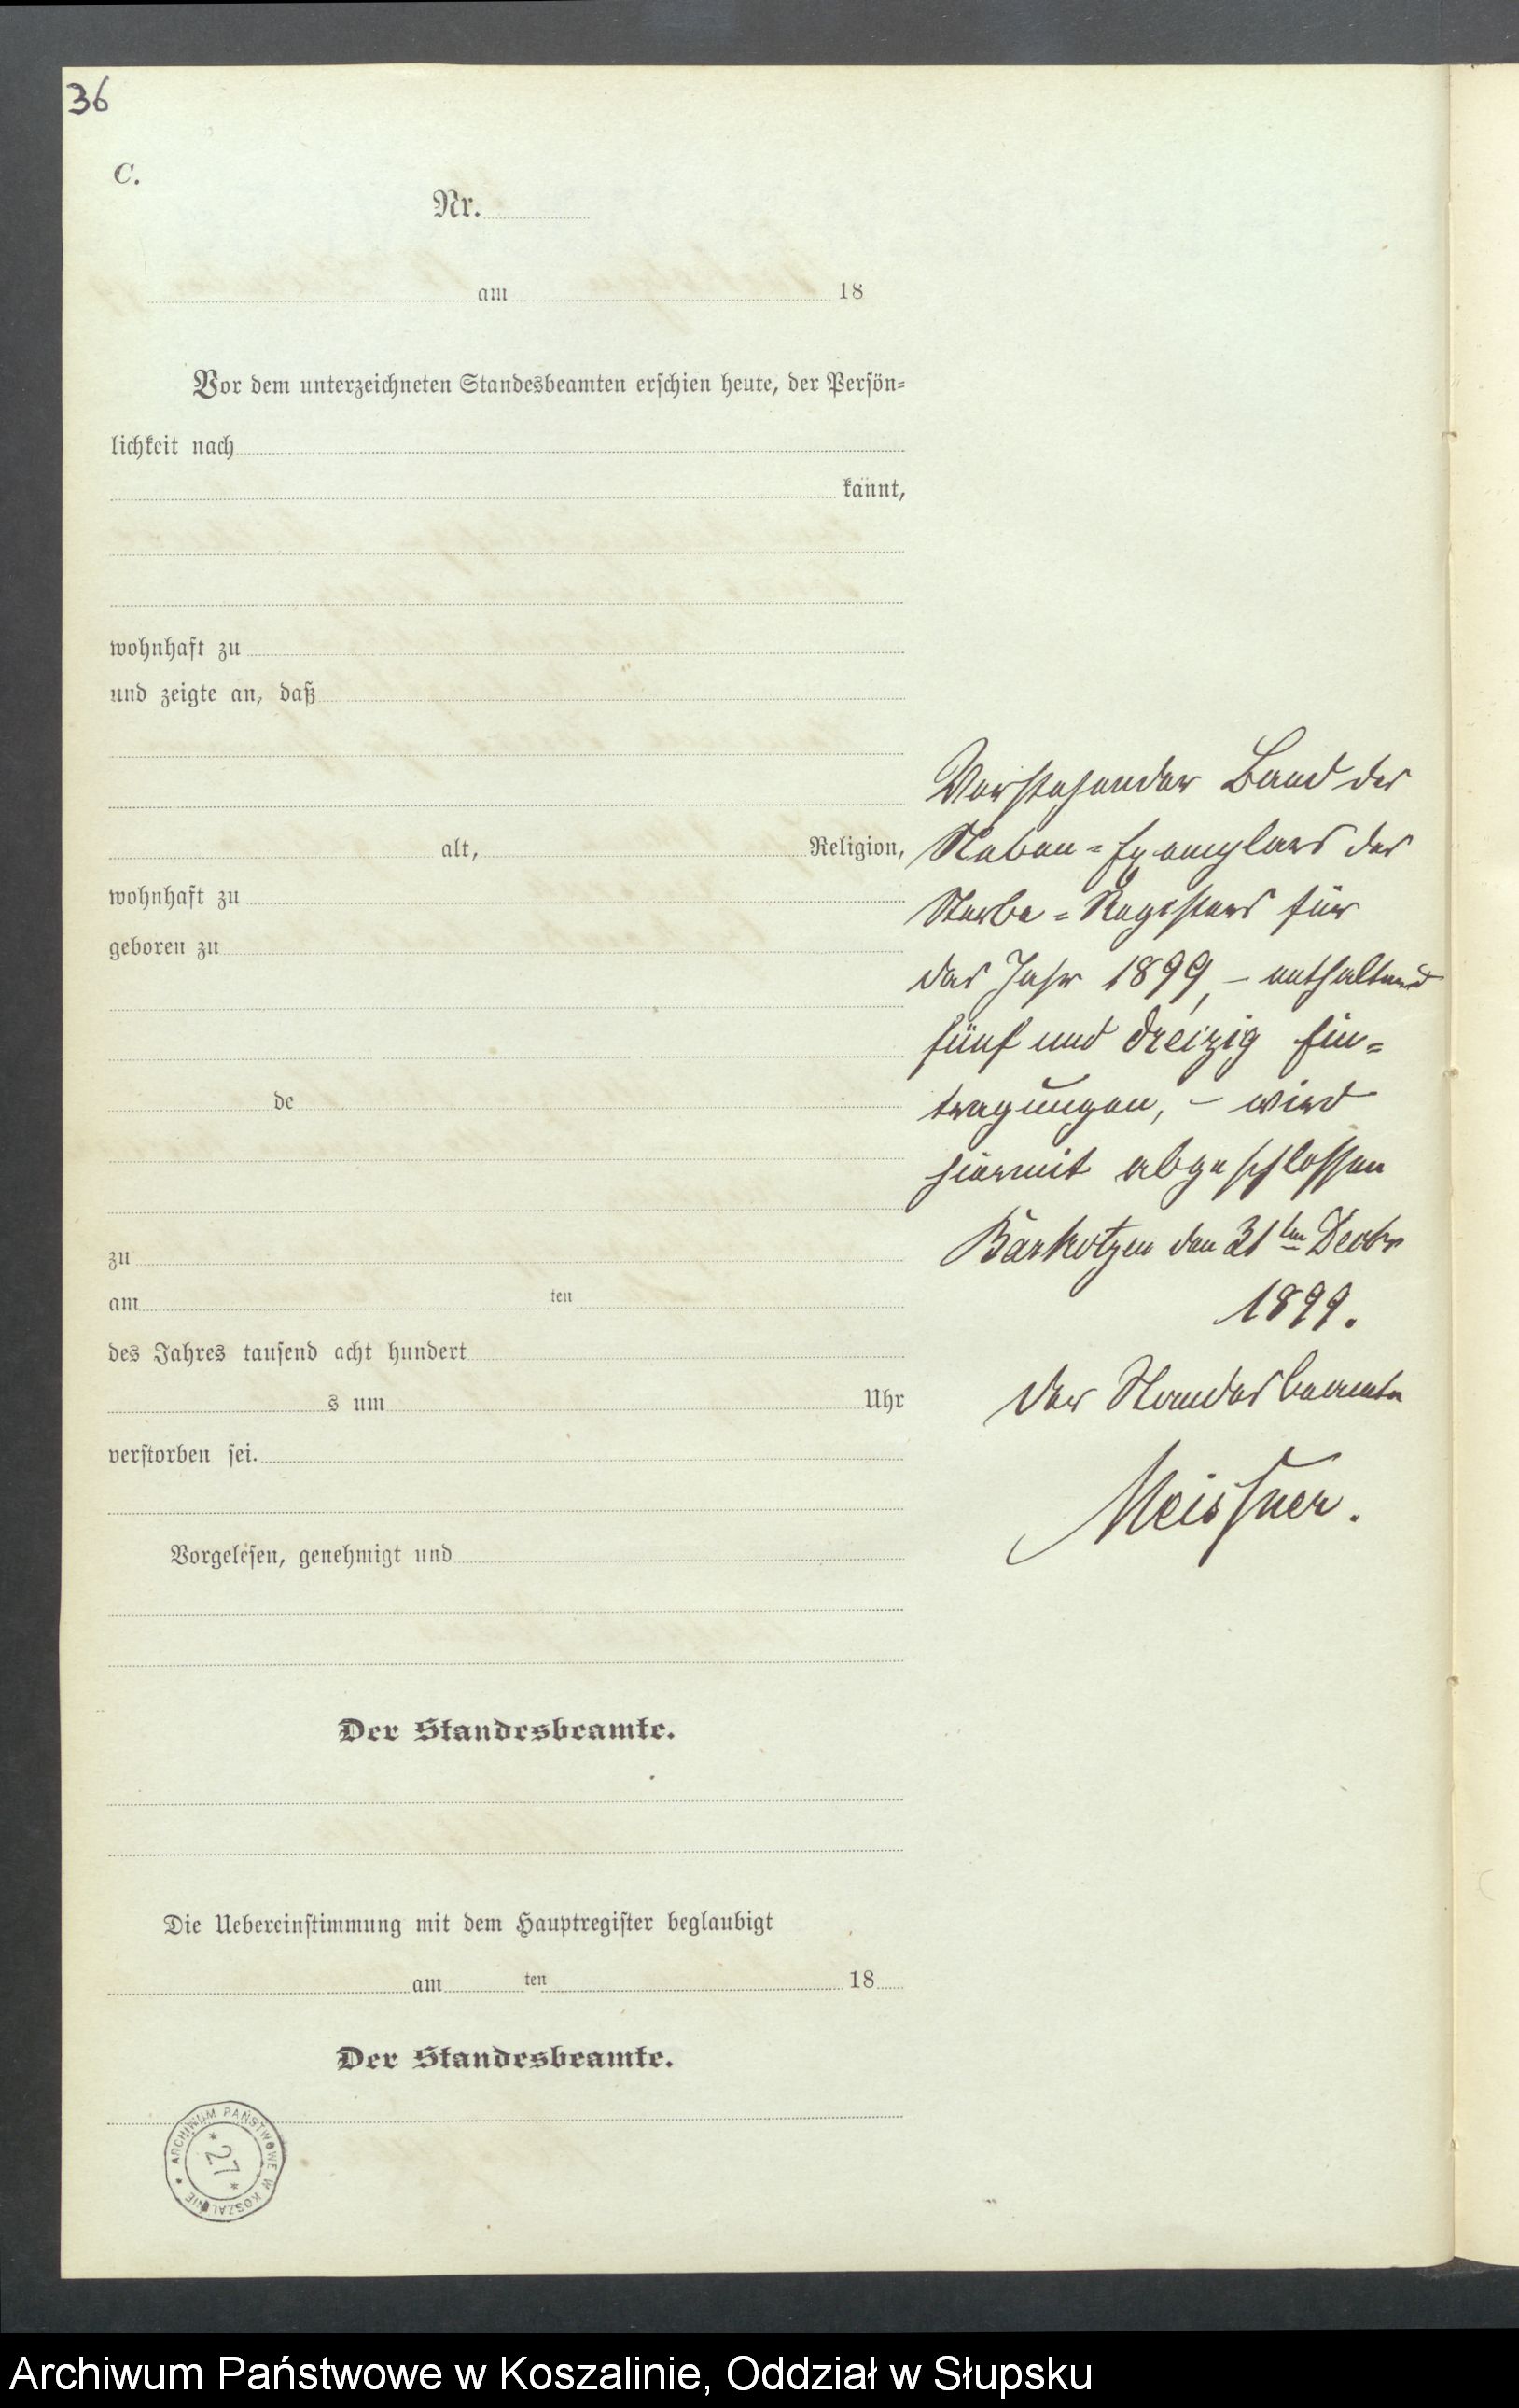 36
C.
Nr.
am 18
Vor dem unterzeichneten Standesbeamten erschien heute, der Persön=
lichkeit nach
kannt,
wohnhaft zu
und zeigte an, daß
alt, Religion,
wohnhaft zu
geboren zu
de
zu
am ten
des Jahres tausend acht hundert
s um Uhr
verstorben sei.
Vorgelesen, genehmigt und
Der Standesbeamte.
Die Uebereinstimmung mit dem Hauptregister beglaubigt
am ten 18
Der Standesbeamte.
Vorstehender Band des
Neben=Exemplars des
Sterbe=Registers für
das Jahr 1899, – enthaltend
fünf und dreizig Ein=
tragungen, – wird
hiermit abgeschlossen
Barkotzen den 31ten Decbr
1899.
Der Standesbeamte
Meissner.
ARCHIWUM PAŃSTWOWE W KOSZALINIE
* 27 *
Archiwum Państwowe w Koszalinie, Oddział w Słupsku